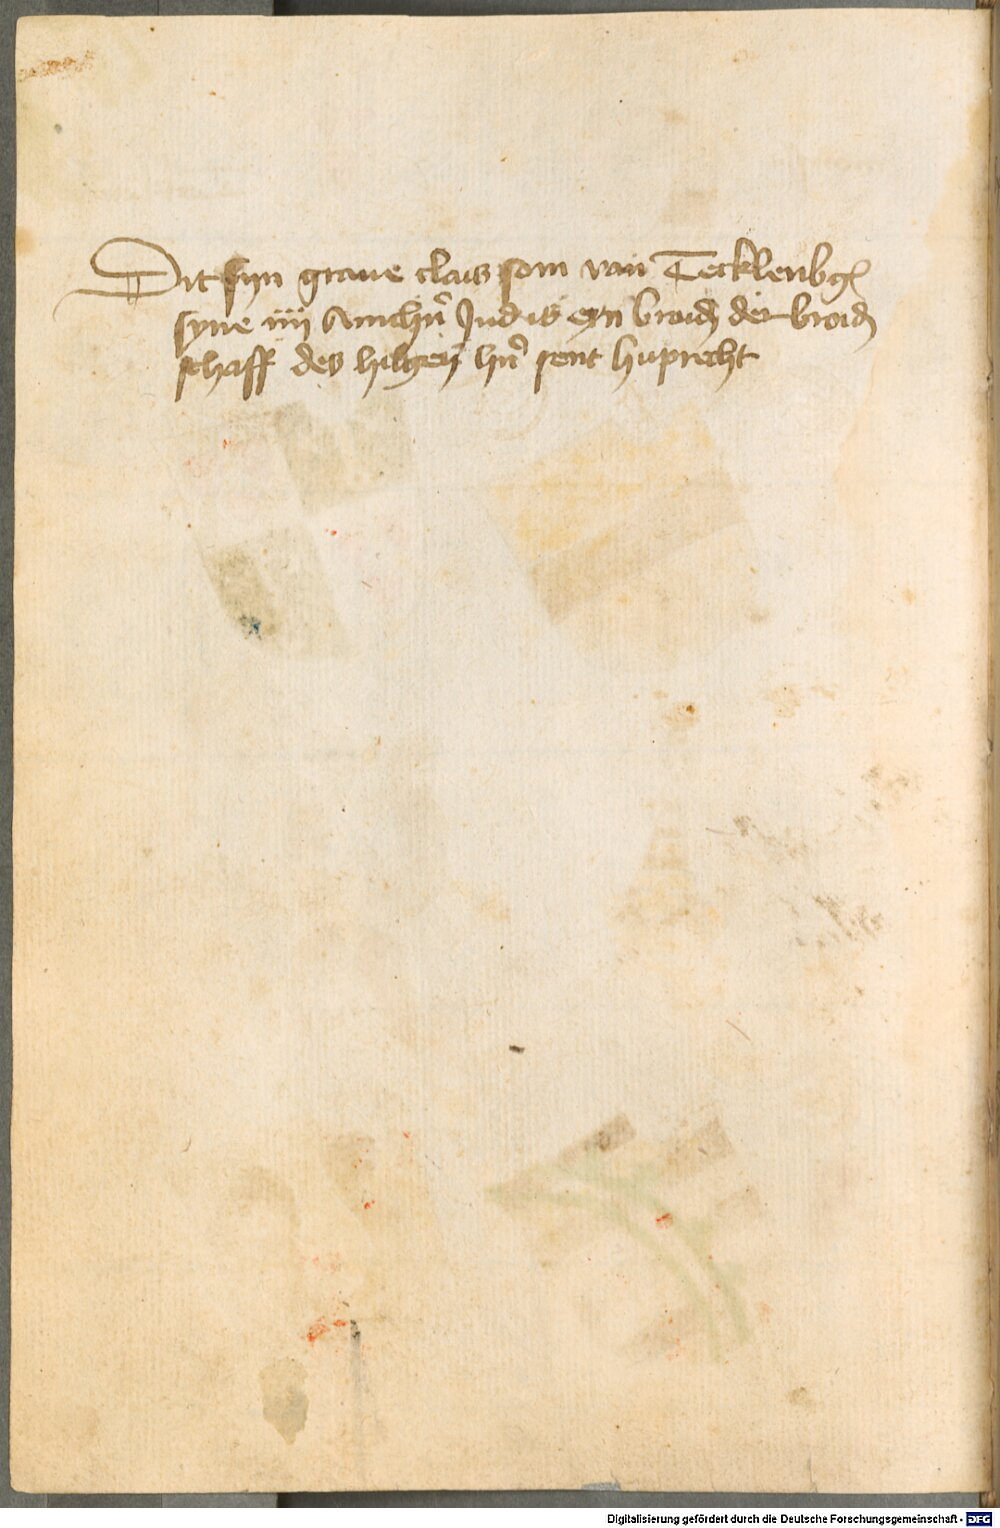 Dit syn graue clais son van Tecklenbg
syne iiij Anichn̄ Ind is eyn broid der broid
schaff des hilgen hn̄ sent huprecht
Digitalisierung gefördert durch die Deutsche Forschungsgemeinschaft - DFG